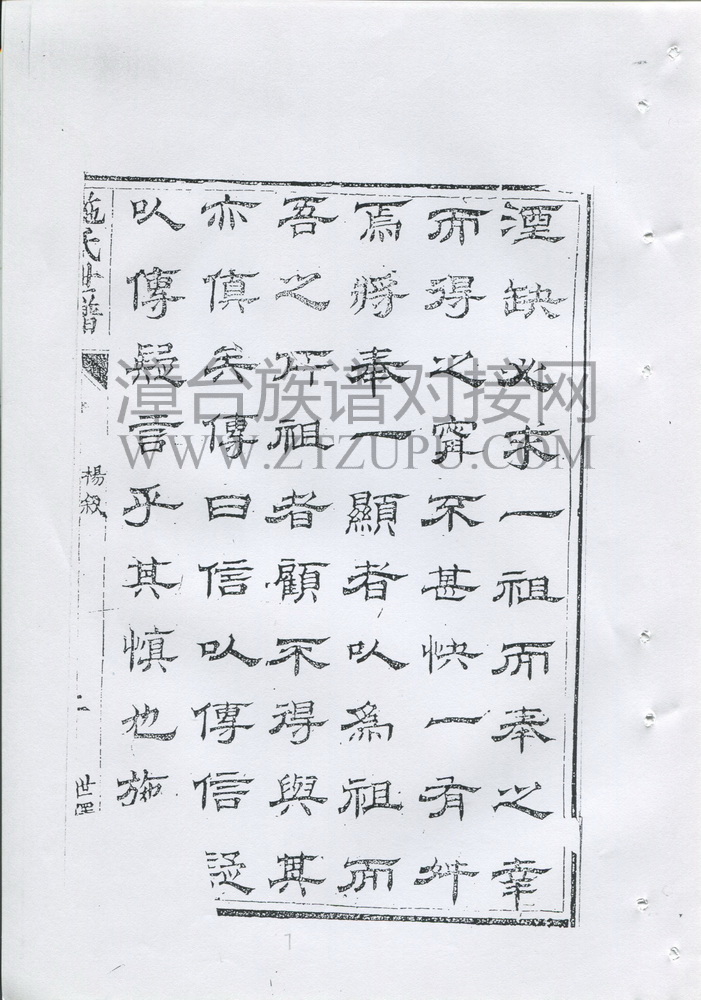 湮缺必求一祖而奉之幸
而得之寧不甚快一有舛
焉將奉一顯者以為祖而
吾之所祖者顧不得與其
亦傎矣傳曰信以傳信疑
以傳疑言乎其慎也施
施氏世譜
楊敘
漳台族谱对接网
WWW.ZTZUPU.COM